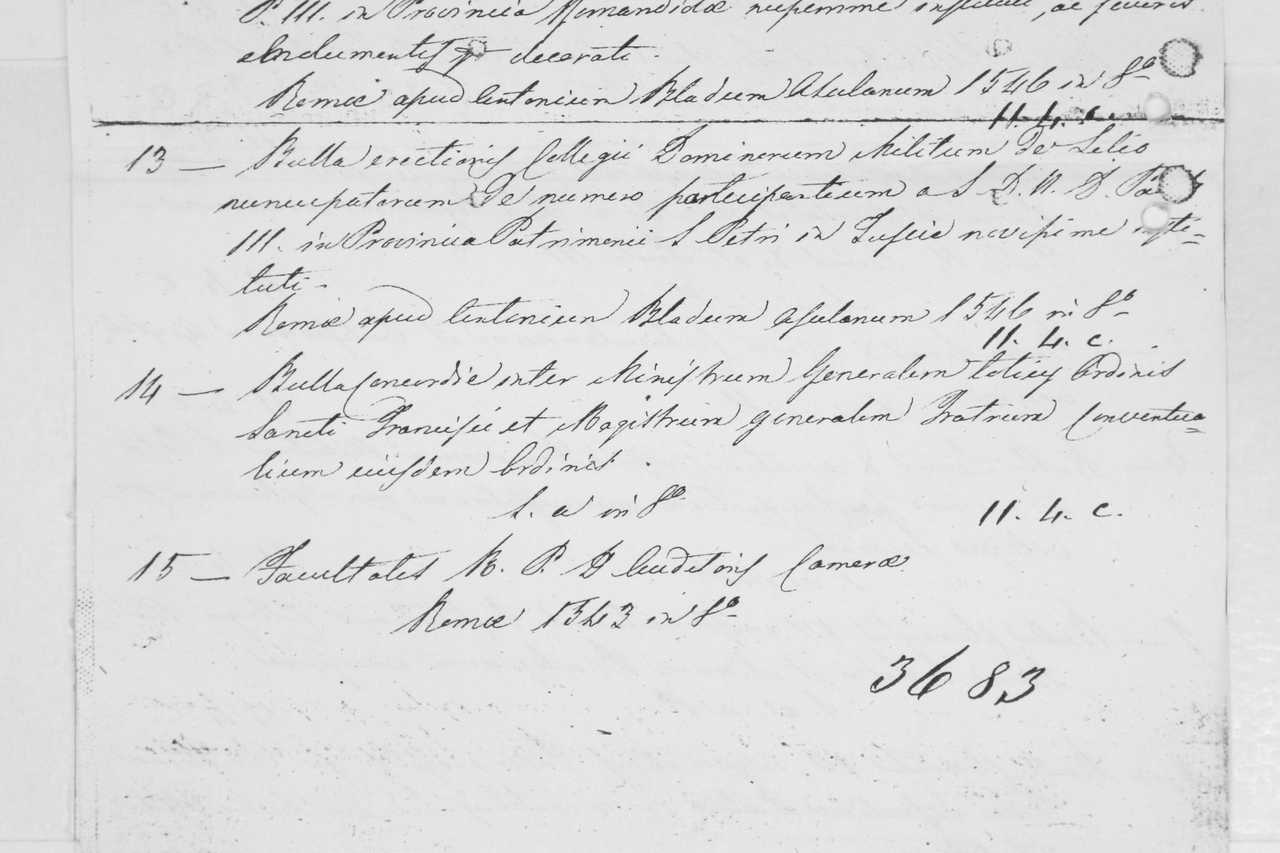 P. III. in Provincia nuperrime
decorati.
Romæ apud Antonium Bladum Asulanum 1546 in 8º
11. 4. c.
13 — Bulla erectionis Collegii Dominorum Militum de Lilio
nuncupatorum De numero participantium a S. D. N. D. Pa
III. in Provincia Patrimonii S. Petri in Tuscie novissime insti-
tuti.
Romæ apud Antonium Bladum Asulanum 1546 in 8º
11. 4. c.
14 — Bulla Concordie inter Ministrum Generalem totius Ordinis
Sancti Francisci et Magistrum generalem Fratrum Conventua-
lium eiusdem Ordinis.
S. a in 8º
11. 4. c.
15 — Facultates R. P. D Auditoris Cameræ
Romæ 1543 in 8º
3683